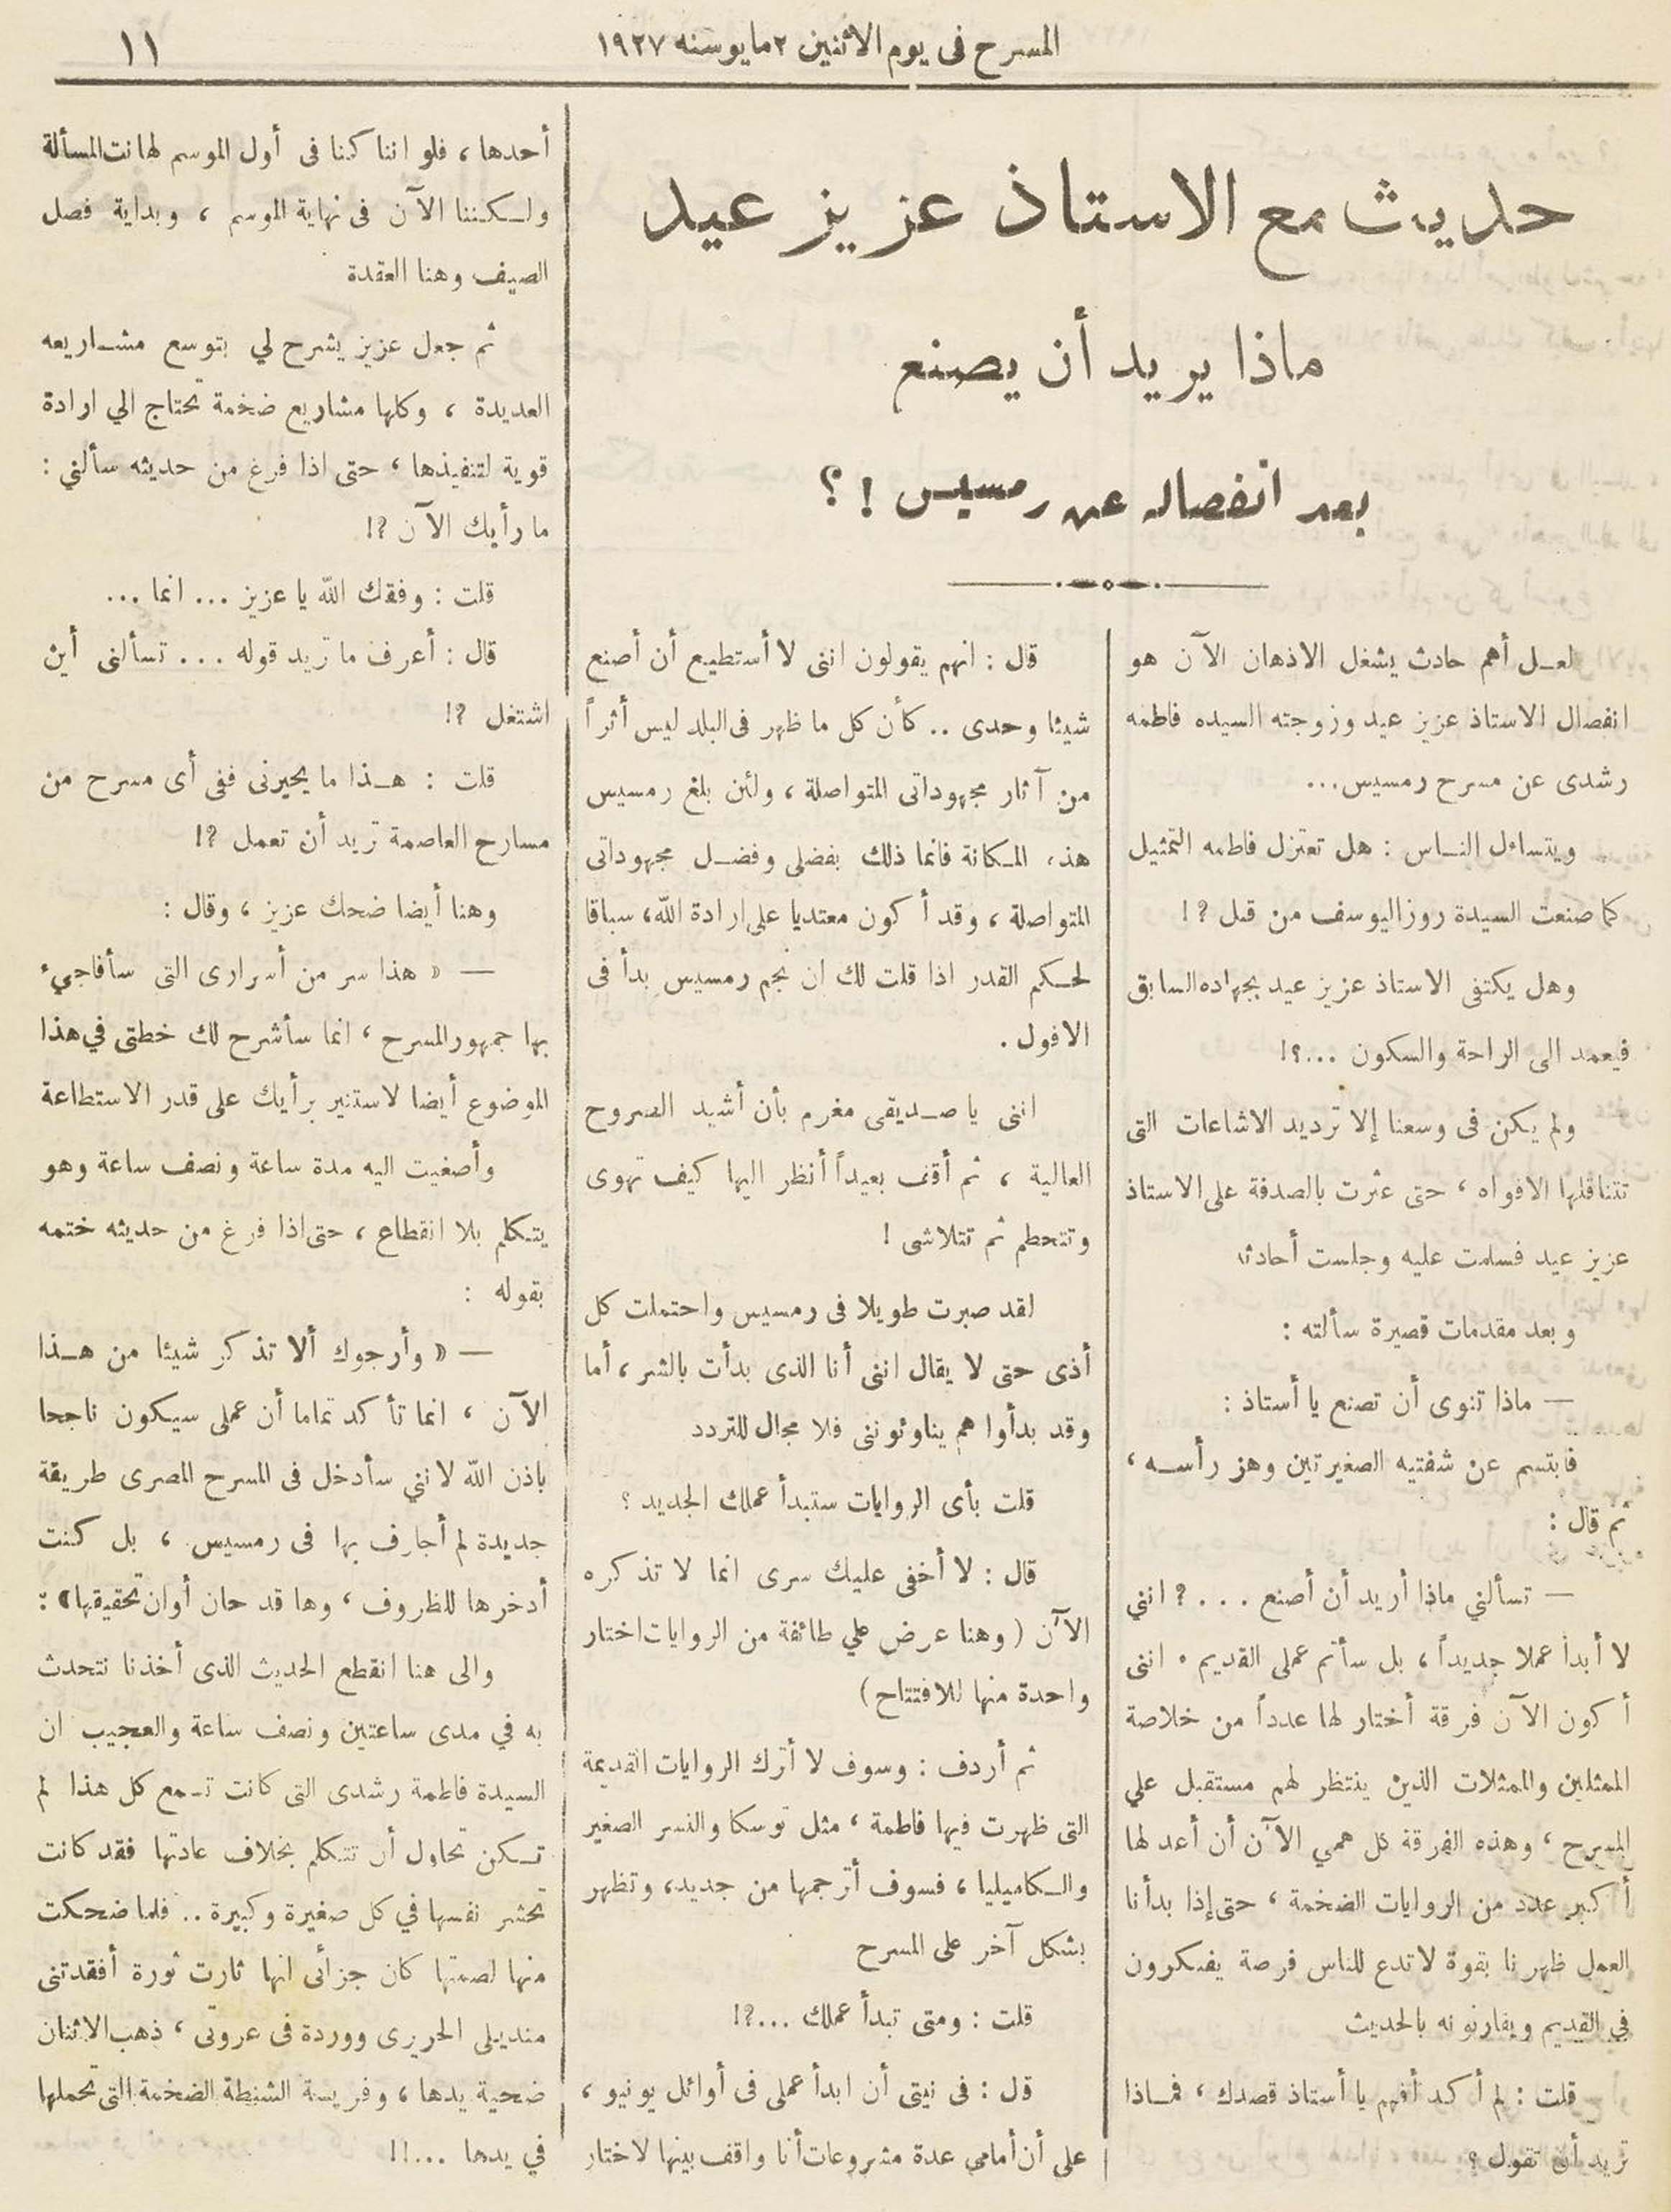 المسرح فى يوم الاثنين ٢ مايو سنه ١٩٢٧
١١
حديث مع الاستاذ عزيز عيد
ماذا يريد أن يصنع
بعد انفصاله عن رمسيس ! ؟
لعـل أهم حادث يشغل الاذهان الآن هو
انفصال الاستاذ عزيز عيد وزوجته السيده فاطمه
رشدى عن مسرح رمسيس...
ويتساءل النـاس : هل تعتزل فاطمه التمثيل
كما صنعت السيدة روز اليوسف من قبل ? !
وهل يكتفى الاستاذ عزيز عيد بجهاده السابق
فيعمد الى الراحة والسكون ...؟!
ولم يكن فى وسعنا إلا ترديد الاشاعات التى
تتناقلها الافواه ، حتى عثرت بالصدفة على الاستاذ
عزيز عيد فسلمت عليه وجلست أحادثه
وبعد مقدمات قصيرة سألته :
— ماذا تنوى أن تصنع يا أستاذ :
فابتسم عن شفتيه الصغيرتين وهز رأسـه ،
ثم قال :
— تسألني ماذا أريد أن أصنع . . . ? انني
لا أبدأ عملا جديداً ، بل سأتم عملى القديم . انى
أكون الآن فرقة أختار لها عدداً من خلاصة
الممثلين والممثلات الذين ينتظر لهم مستقبل علي
المسرح ، وهذه الفرقة كل همي الآن أن أعد لها
أكبر عدد من الروايات الضخمة ، حتى إذا بدأنا
العمل ظهرنا بقوة لا تدع للناس فرصة يفكرون
في القديم ويقارنونه بالحديث
قلت : لم أكد أفهم يا أستاذ قصدك ، فمـاذا
تريد أن تقول ؟
قال : انهم يقولون اننى لا أستطيع أن أصنع
شيئا وحدى .. كأن كل ما ظهر فى البلد ليس أثراً
من آثار مجهوداتى المتواصلة ، ولئن بلغ رمسيس
هذه المـكانة فانما ذلك بفضلى وفضـل مجهوداتى
المتواصلة ، وقد أكون معتديا على ارادة الله ، سباقا
لحـكم القدر اذا قلت لك ان نجم رمسيس بدأ فى
الافول .
اننى يا صـديقى مغرم بأن أشيد الصروح
العالية ، ثم أقف بعيداً أنظر اليها كيف تهوى
وتتحطم ثم تتلاشى !
لقد صبرت طويلا فى رمسيس واحتملت كل
أذى حتى لا يقال اننى أنا الذى بدأت بالشر ، أما
وقد بدأوا هم يناوئوننى فلا مجال للتردد
قلت بأى الروايات ستبدأ عملك الجديد ؟
قال : لا أخفى عليك سرى انما لا تذكره
الآن ( وهنا عرض علي طائفة من الروايات اختار
واحدة منها للافتتاح )
ثم أردف : وسوف لا أترك الروايات القديمة
التى ظهرت فيها فاطمة ، مثل توسكا والنسر الصغير
والـكاميليا ، فسوف أترجمها من جديد ، وتظهر
بشكل آخر على المسرح
قلت : ومتى تبدأ عملك ...?!
قال : فى نيتى أن ابدأ عملى فى أوائل يونيو ،
على أن أمامى عدة مشروعات أنا واقف بينها لاختار
أحدها ، فلو اننا كنا فى أول الموسم لهانت المسألة
ولـكننا الآن فى نهاية الموسم ، وبداية فصل
الصيف وهنا العقدة
ثم جعل عزيز يشرح لي بتوسع مشـاريعه
العديدة ، وكلها مشاريع ضخمة تحتاج الي ارادة
قوية لتنفيذها ، حتى اذا فرغ من حديثه سألني :
ما رأيك الآن ?!
قلت : وفقك الله يا عزيز ... انما ...
قال : أعرف ما تريد قوله ... تسألنى أين
اشتغل ?!
قلت : هـذا ما يحيرنى ففى أى مسرح من
مسارح العاصمة تريد أن تعمل ?!
وهنا أيضا ضحك عزيز ، وقال :
— « هذا سر من أسرارى التى سأفاجيء
بها جمهور المسرح ، انما سأشرح لك خطتى في هذا
الموضوع أيضا لاستنير برأيك على قدر الاستطاعة
وأصغيت اليه مدة ساعة ونصف ساعة وهو
يتكلم بلا انقطاع ، حتى اذا فرغ من حديثه ختمه
بقوله :
— « وأرجوك ألا تذكر شيئا من هـذا
الآن ، انما تأكد تماما أن عملى سيكون ناجحا
باذن الله لانني سأدخل فى المسرح المصرى طريقة
جديدة لم أجازف بها فى رمسيس ، بل كنت
أدخرها للظروف ، وها قد حان أوان تحقيقها » :
والى هنا انقطع الحديث الذى أخذنا نتحدث
به في مدى ساعتين ونصف ساعة والعجيب ان
السيدة فاطمة رشدى التى كانت تسمع كل هذا لم
تـكن تحاول أن تتكلم بخلاف عادتها فقد كانت
تحشر نفسها في كل صغيرة وكبيرة .. فلما ضحكت
منها لصمتها كان جزائى انها ثارت ثورة أفقدتنى
منديلى الحريرى ووردة فى عروتى ، ذهب الاثنان
ضحية يدها ، وفريسة الشنطة الضخمة التى تحملها
في يدها ...!!